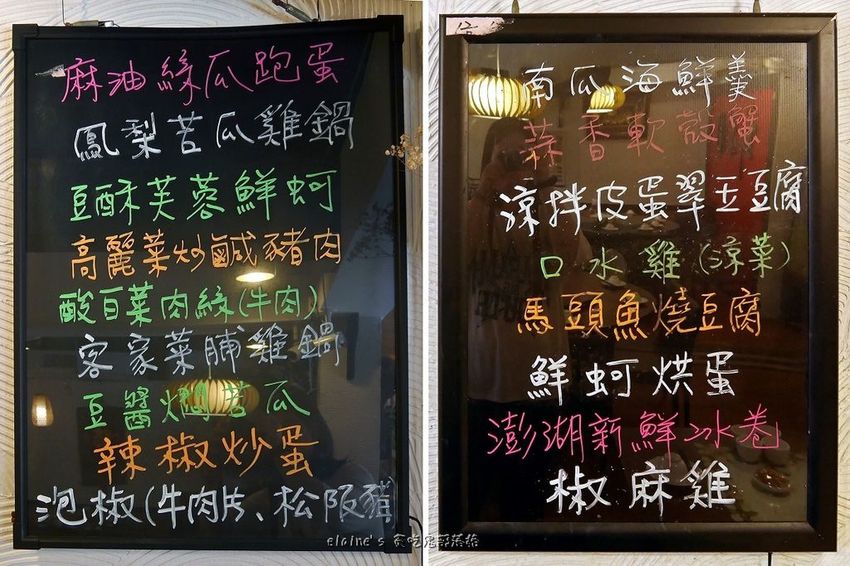 麻油絲瓜跑蛋
鳳梨苦瓜雞鍋
豆酥芙蓉鮮蚵
高麗菜炒鹹豬肉
酸白菜肉絲(牛肉)
客家菜脯雞鍋
豆醬燜苦瓜
辣椒炒蛋
泡椒(牛肉片、松阪豬)
南瓜海鮮羹
蒜香軟殼蟹
涼拌皮蛋翠玉豆腐
口水雞(涼菜)
馬頭魚燒豆腐
鮮蚵烘蛋
澎湖新鮮冰卷
椒麻雞
elaine's 貪吃鬼部落格